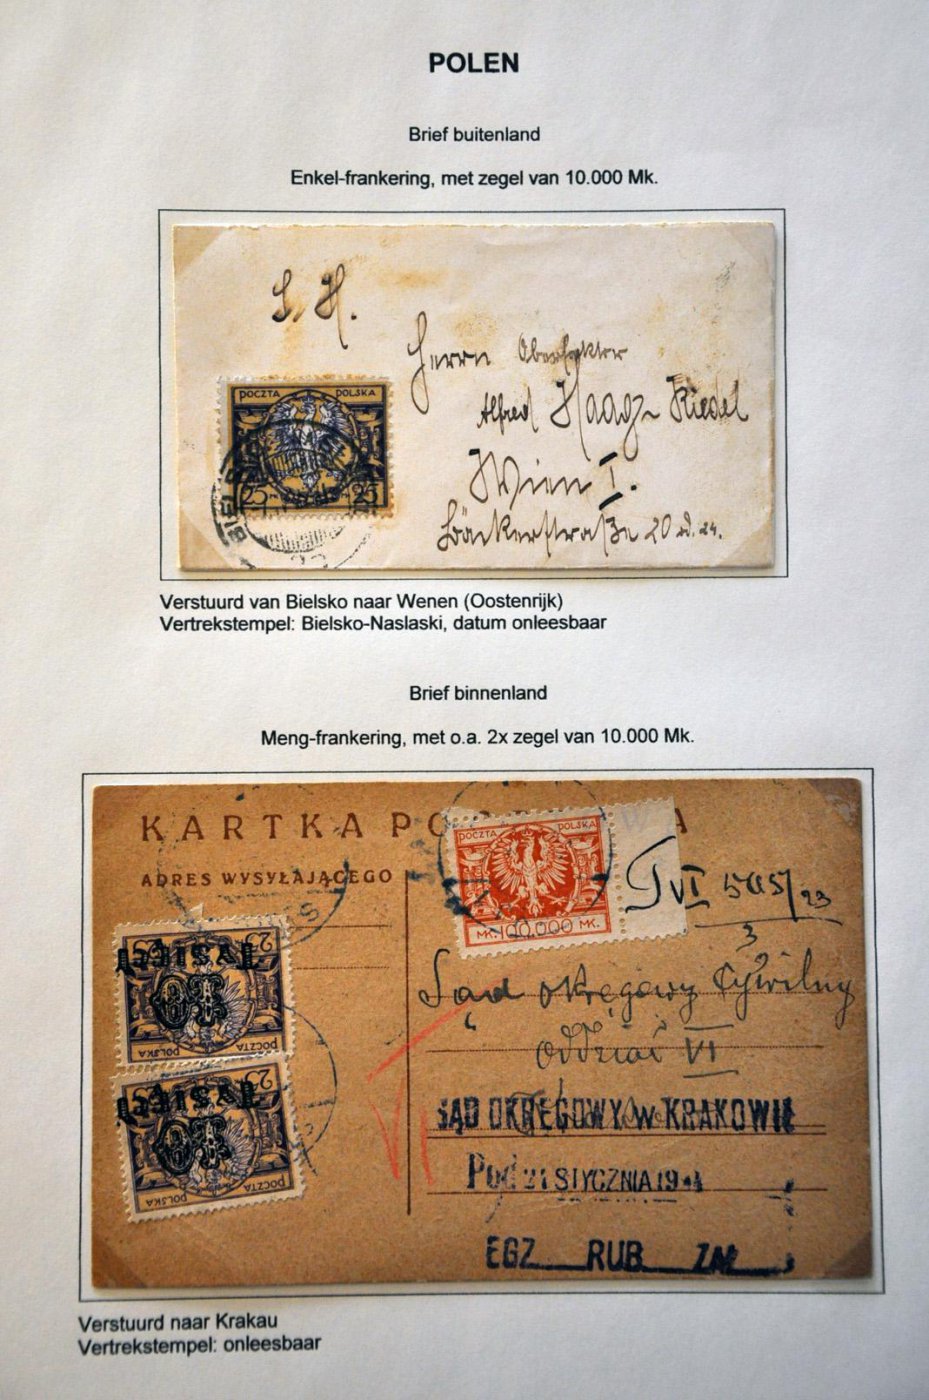 POLEN
Brief buitenland
Enkel-frankering, met zegel van 10.000 Mk.
S. H.
Herrn
Alfred Haagz Riedel
Wien I.
Bäckerstraße 20
POCZTA POLSKA
25 25
BIEL
Verstuurd van Bielsko naar Wenen (Oostenrijk)
Vertrekstempel: Bielsko-Naslaski, datum onleesbaar
Brief binnenland
Meng-frankering, met o.a. 2x zegel van 10.000 Mk.
KARTKA PO A
ADRES WYSYŁAJĄCEGO
POCZTA POLSKA
MK. 100.000 MK.
VI 505/23
3
Sąd okręgowy Cywilny
oddział VI
25 25
TYSIĘCY
10
POCZTA POLSKA
25 25
TYSIĘCY
10
POCZTA POLSKA
SĄD OKRĘGOWY w KRAKOWIE
Pod 21 STYCZNIA 19
EGZ RUB ZAŁ
Verstuurd naar Krakau
Vertrekstempel: onleesbaar